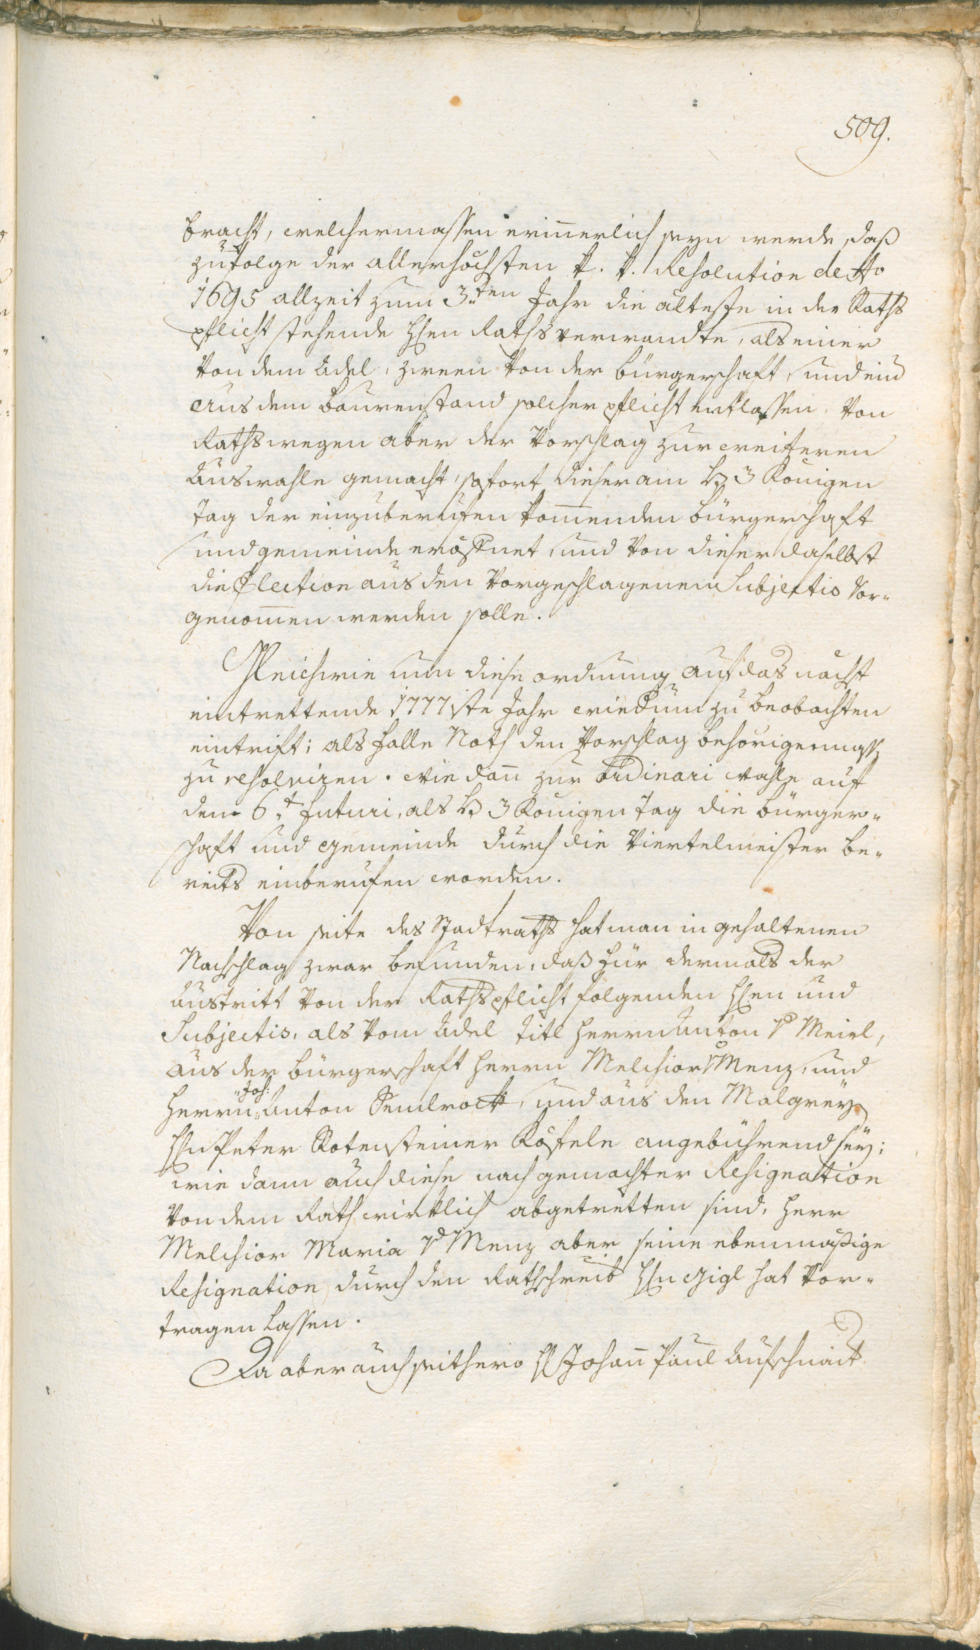 509.
bracht, welchermassen erinnerlich seyn werde, daß
zufolge der allerhöchsten k. k. Resolution de Ao
1695 allzeit zum 3.ten Jahr die älteste in der Raths
pflicht stehende Hhen Rathsverwandte, als einer
von dem Adel, zween von der bürgerschaft, und ein
aus dem Baurenstand solcher pflicht entlassen, von
Rathswegen aber der Vorschlag zur weiteren
Auswahle gemacht, sofort dieser am H 3 Königen
tag der einzuberuffen kommenden bürgerschaft
und gemeinde eröffnet, und von dieser daselbst
die Election aus den vorgeschlagenen Subjectis vor-
genommen werden solle.
Gleichwie nun diese ordnung auf das nächst
eintrettende 1777ste Jahr wiedrum zu beobachten
eintrift; als falle Noth den Vorschlag behörigermassen
zu resolviren. wie dann zur ordinari wahle auf
den 6.t futuri, als H 3 Königen tag die bürger-
schaft und gemeinde durch die Viertelmeister be-
reits einberufen worden.
Von seite des Stadtraths hat man in gehaltenen
Nachschlag zwar befunden, daß für dermals der
austritt von der Rathspflicht folgenden Hhen und
Subjectis, als vom Adel titl herrn Anton v Meirl,
aus der bürgerschaft herrn Melchior v Menz, und
herrn Joh: Anton Semlrock, und aus den Malgreyen
Hn Peter Rotensteiner Kösteln angebührend sey;
wie dann auch diese nach gemachter Resignation
von dem Rath wirklich abgetretten sind, herr
Melchior Maria v Menz aber seine ebenmäßige
Resignation durch den Rathschreib Hn Gigl hat vor-
tragen lassen.
Da aber auch seithero H Johann Paul Aufschnait